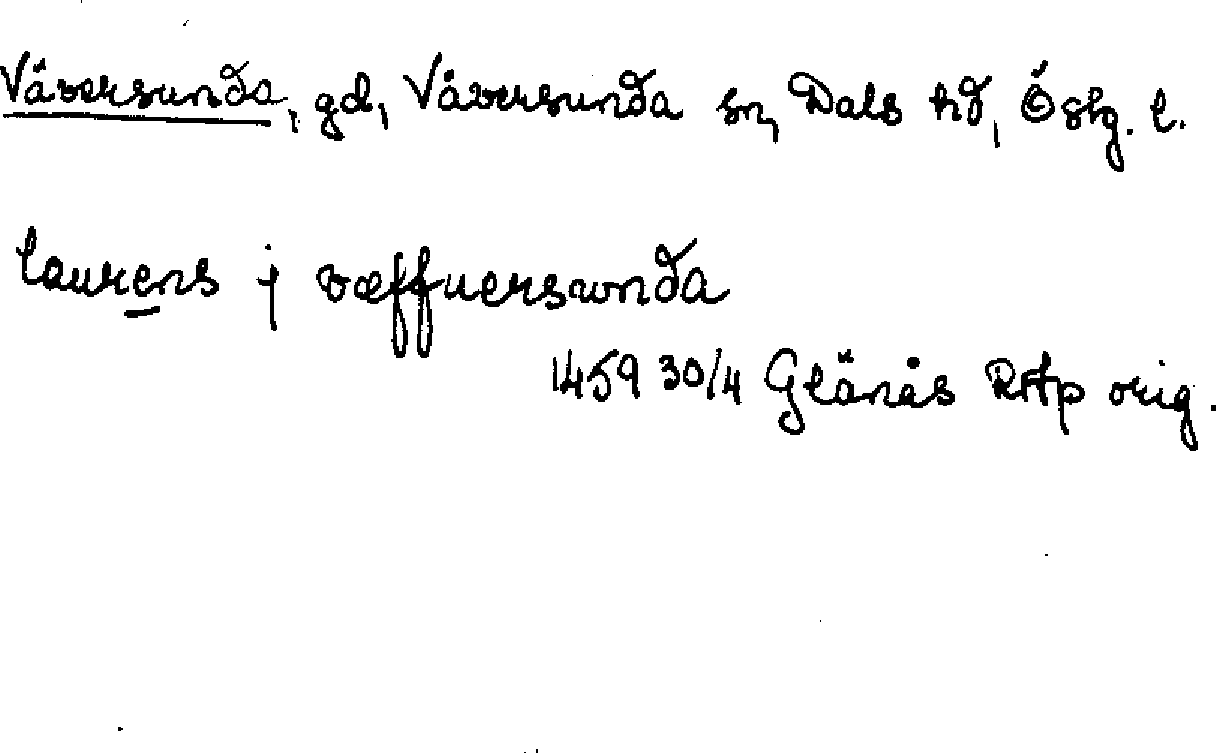 Väversunda, gd, Väversunda sn, Dals hd, Östg. l.
laurens j væffuersunda
1459 30/4 Glänås RAp orig.